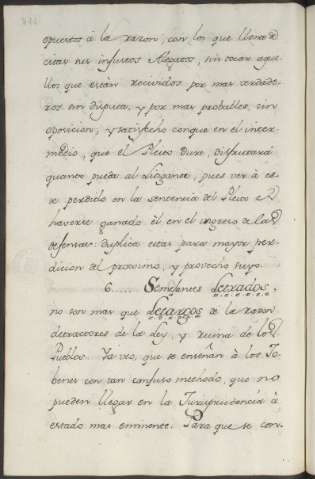 opuestos á la razon, con los que llena d
citas sus injustos Alegatos, sin tocar aque
llos que están recividos por mas verdade-
ros sin disputa, y por mas probables, sin
oposicion; y satisfecho conque en el inter
medio, que el Pleito dure, disfrutará
quanto pueda al Litigante, pues ver á es
e perdido en la sentencia del Pleito es
haverse ganado él en el ingreso de las
defensas: duplica estas para mayor per-
dicion del proximo, y provecho suyo.
6..... Semejantes Letrados,
no son mas que Letargos de la razon
detractores de la Ley, y ruina de los
Pueblos. Ya veo, que se enseñan à los Jo-
benes con tan confuso methodo, que no
pueden llegar en la Jurisprudencia à
estado mas eminente. Para que se con-